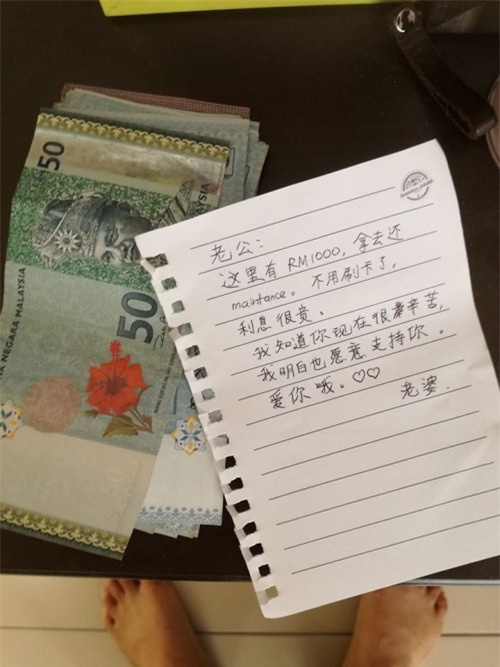 50
50
NEGARA MALAYSIA
老公:
这里有 RM1000, 拿去还
maintance。 不用刷卡了,
利息很贵、
我知道你现在很辛苦,
我明白也愿意支持你。
爱你哦。♡♡ 老婆.